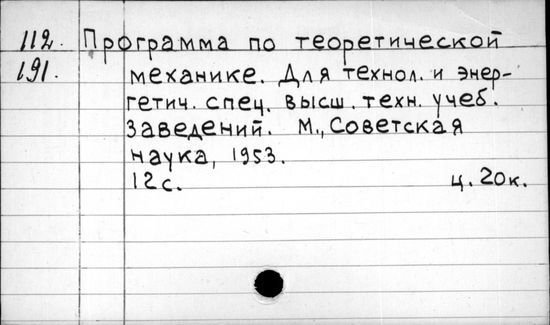 112. Программа по теоретической
191. механике. Для технол. и энер-
гетич. спец. высш. техн. учеб.
заведений. М., Советская
наука, 1953.
12 с. ц. 20 к.